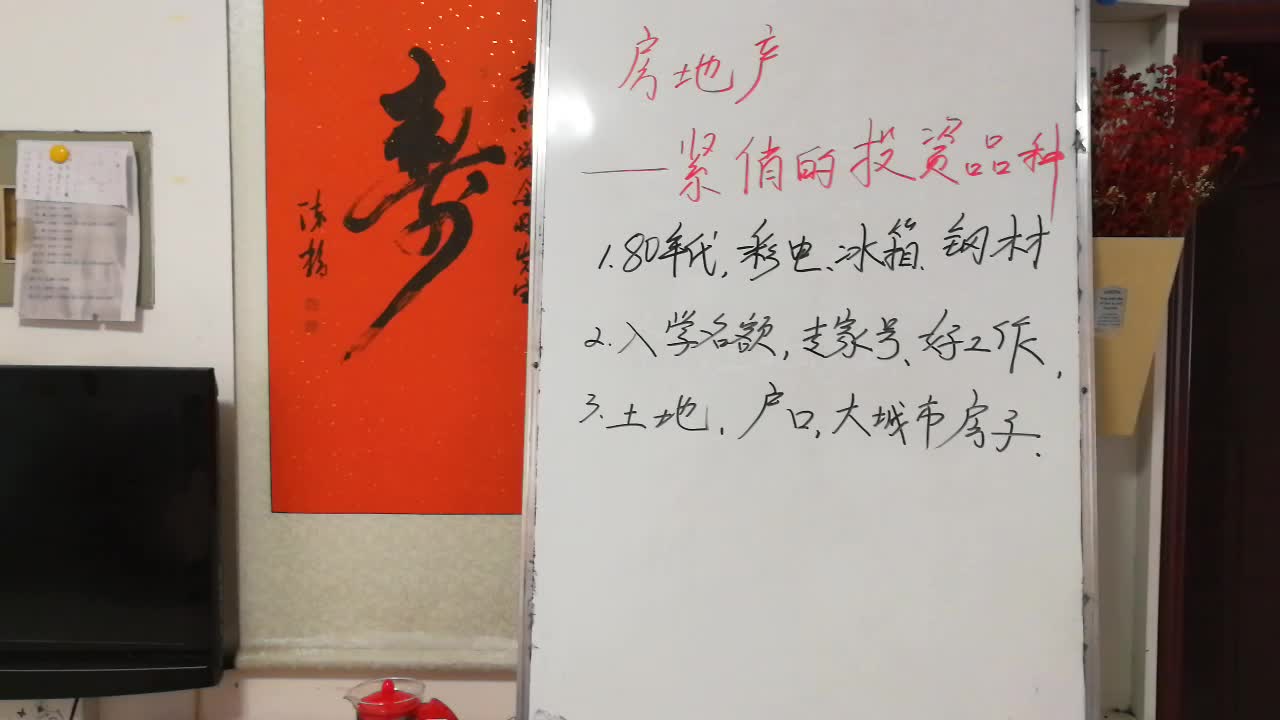 寿
陈龄
房地产
—紧俏的投資品种
1.80年代,彩电、冰箱、钢材
2.入学名额,专家号、好工作,
3.土地,户口,大城市房子.